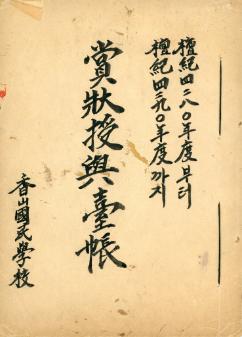 檀紀四二八○年度부터
檀紀四二九○年度까지
賞狀授與臺帳
香山國民學校